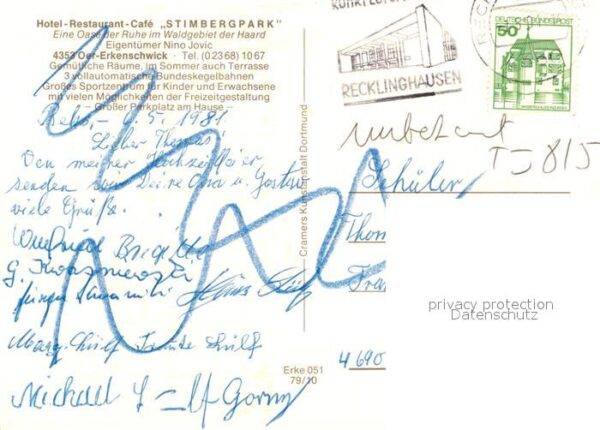 Hotel-Restaurant-Café „STIMBERGPARK"
Eine Oase der Ruhe im Waldgebiet der Haard
Eigentümer Nino Jovic
4353 Oer-Erkenschwick Tel. (02368) 1067
Gemütliche Räume, im Sommer auch Terrasse
3 vollautomatische Bundeskegelbahnen
Großes Sportzentrum für Kinder und Erwachsene
mit vielen Möglichkeiten der Freizeitgestaltung
– Großer Parkplatz am Hause –
5. 1981
Lieber Thomas!
Von meiner Hochzeitsfeier
senden wir Deine Oma u. Gustav
viele Grüße.
Winfried Brigitte
G.
Jürgen
Klaus
Marg. Schilf Schilf
Michael Gorny
Cramers Kunstanstalt Dortmund
Erke 051
79/10
RECKLINGHAUSEN
DEUTSCHE BUNDESPOST
50
unbekannt
T = 8/5
Schüler
Thom
Fra
4690
privacy protection
Datenschutz